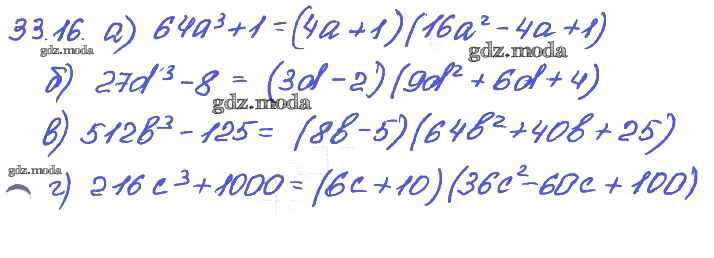 33.16. а) 64a³+1=(4a+1)(16a²-4a+1)
gdz.moda
gdz.moda
б) 27d³-8 = (3d-2)(9d²+6d+4)
gdz.moda
в) 512b³-125= (8b-5)(64b²+40b+25)
gdz.moda
г) 216c³+1000=(6c+10)(36c²-60c+100)